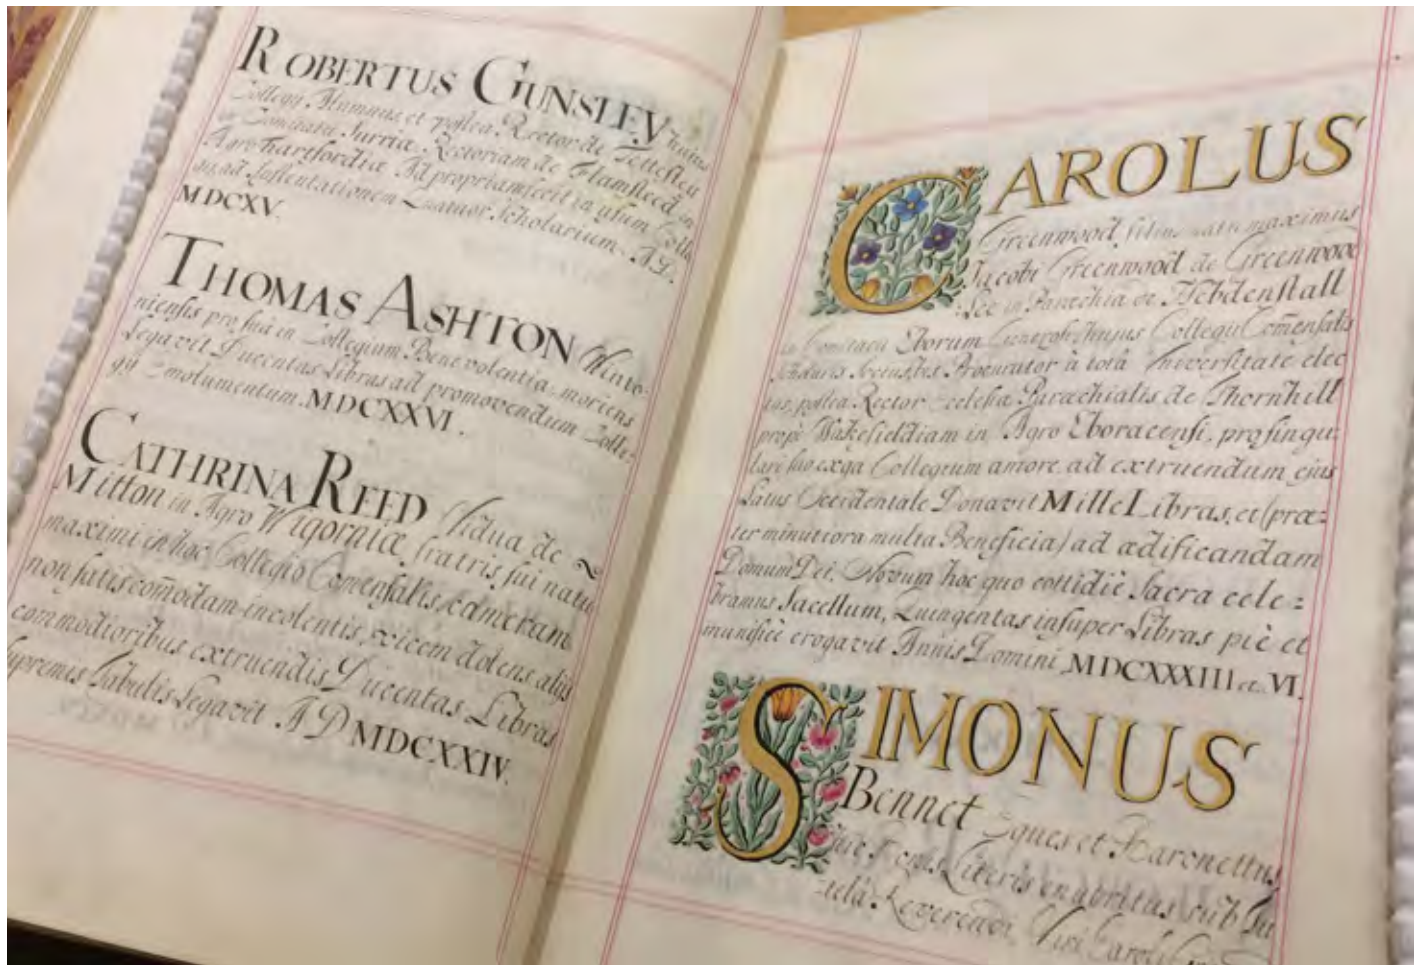 ROBERTUS GUNSLEY hujus
Collegii Alumnus et postea Rector de Tettesley
in Comitatu Surriæ Rectoriam de Flamsteed in
Agro hartfordiæ Ad propriam fecit in usum Colle
gii, ad Sustentationem Quatuor Scholarium. A.D.
MDCXV.
THOMAS ASHTON Winto-
niensis pro sua in Collegium Benevolentia, moriens
Legavit Ducentas Libras ad promovendum Colle:
gij Emolumentum. MDCXXVI.
CATHRINA REED Vidua de ~
Mitton in Agro Wigorniæ, fratris sui natu
maximi in hoc Collegio Comensalis, cameram
non satis com̄odam incolentis, vicem dolens alijs
commodioribus extruendis Ducentas Libras
supremis Tabulis Legavit A D MDCXXIV.
CAROLUS
Greenwood filius natu maximus
Jacobi Greenwood de Greenwood
Lee in Parœchia de Hebdenstall
in Comitatu Eborum hujus Collegii Com̄ensalis
Socius, bis Procurator à totâ Universitate elec
tus, postea Rector Ecclesiæ Parœchialis de Thornhill
propè Wakefieldiam in Agro Eboracensi, pro singu:
lari suo erga Collegium amore, ad extruendum ejus
Latus Occidentale Donavit Mille Libras, et (præ:
ter minutiora multa Beneficia) ad ædificandam
Domum Dei, Novum hoc quo cottidiè Sacra cele:
bramus Sacellum, Quingentas insuper Libras piè et
munificè erogavit Annis Domini MDCXXXIII et VI.
SIMONUS
Bennet Eques et Baronettus
hic bonis Literis enutritus, sub tu
telâ Reverendi Viri Caroli